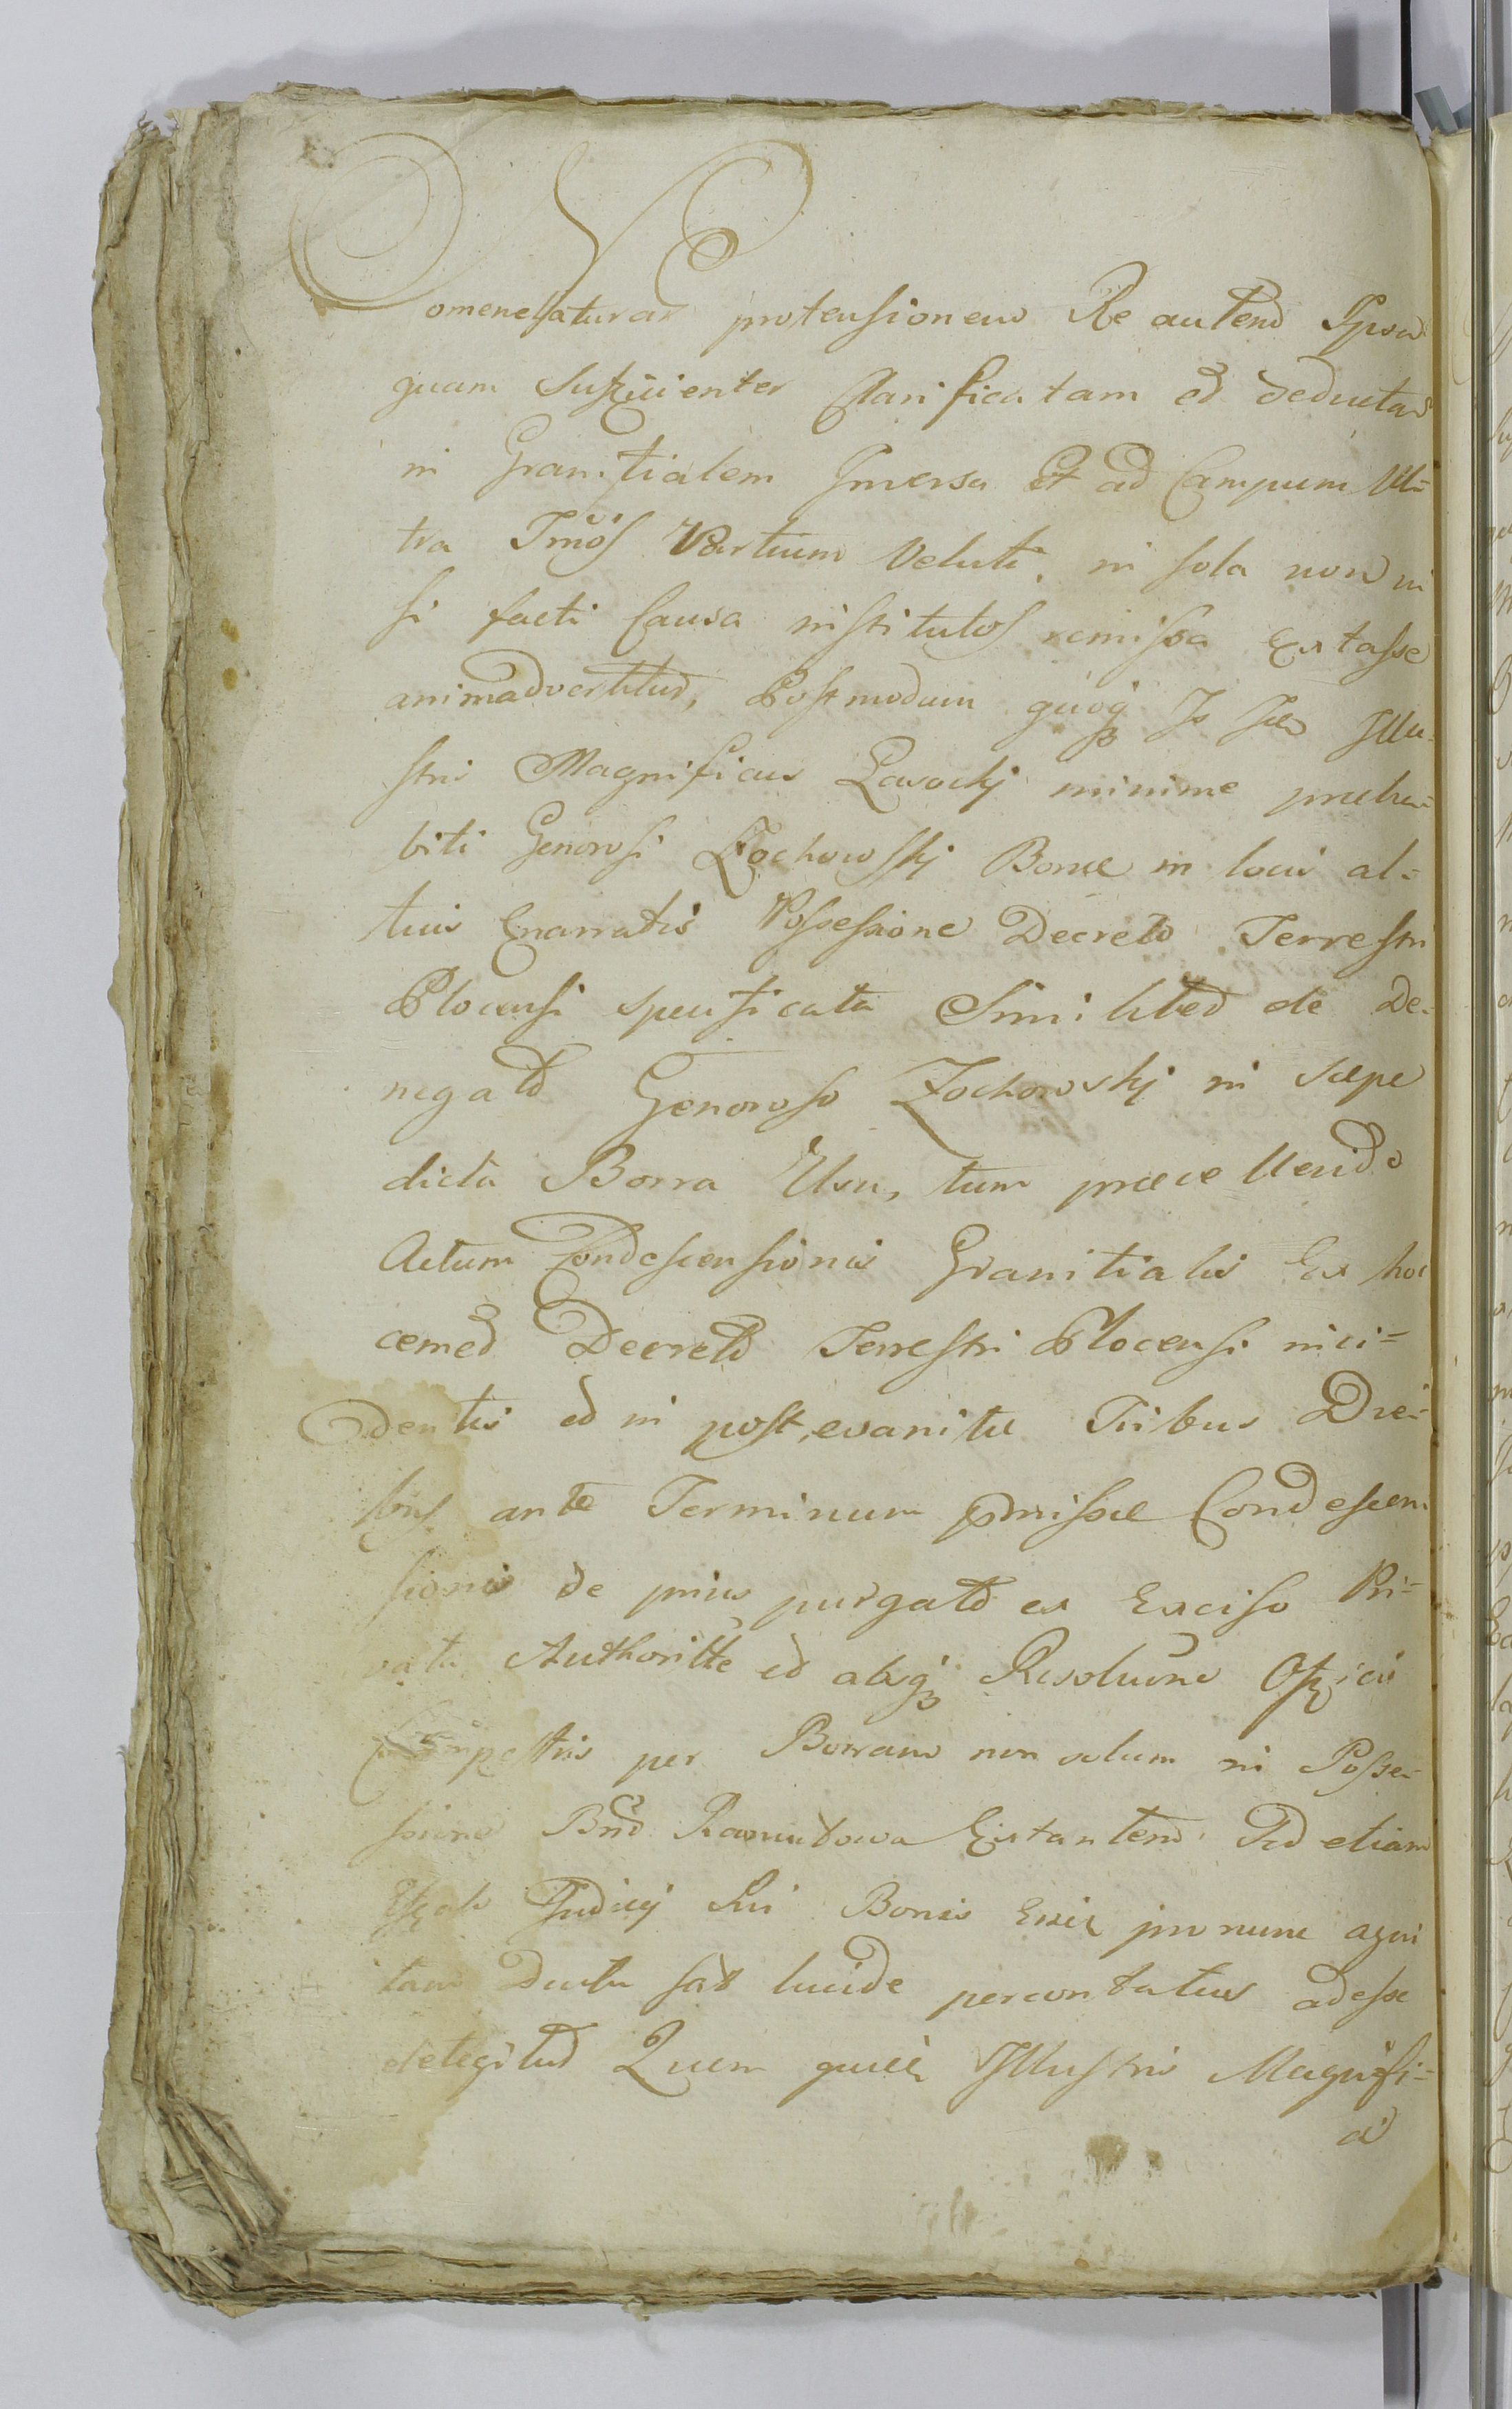 Nomenclatura protensionem Re autem Ipsa
quam Sufficienter Clarificatam et deductam
in Granitialem Inversa Et ad Campum Ul=
tra Tmos Partium Veluti in sola non ni
si facti Causa institutos remissa Extasse
animadvertitur, Postmodum quoq Is Illu
stris Magnificus Lasocki minime prohi=
biti Generosi Zochowskj Borrae in locis al=
tius Enarratis Possessione Decreto Terrestri
Plocensi specificata Similiter de De-
negato Generoso Zochowskj in saepe
dicta Borra Usu, tum praecellendo
Actum Condescensionis Granitialis Ex hoc
cemet Decreto Terrestri Plocensi inci=
dentis et in post, evanitae Tribus Die=
bus ante Terminum pmissae Condescen
sionis de prius purgato ex Exciso Pri=
vata Authoritte et absq Resolune Officii
Campestris per Borram non solum in Posse-
ssione Bnd Ramutowa Extantem Sed etiam
Judicij Sui Bonis pro nunc agni
tam Ductu sat lucide percontatus adesse
detegitur Quem Illustris Magnifi=
ci